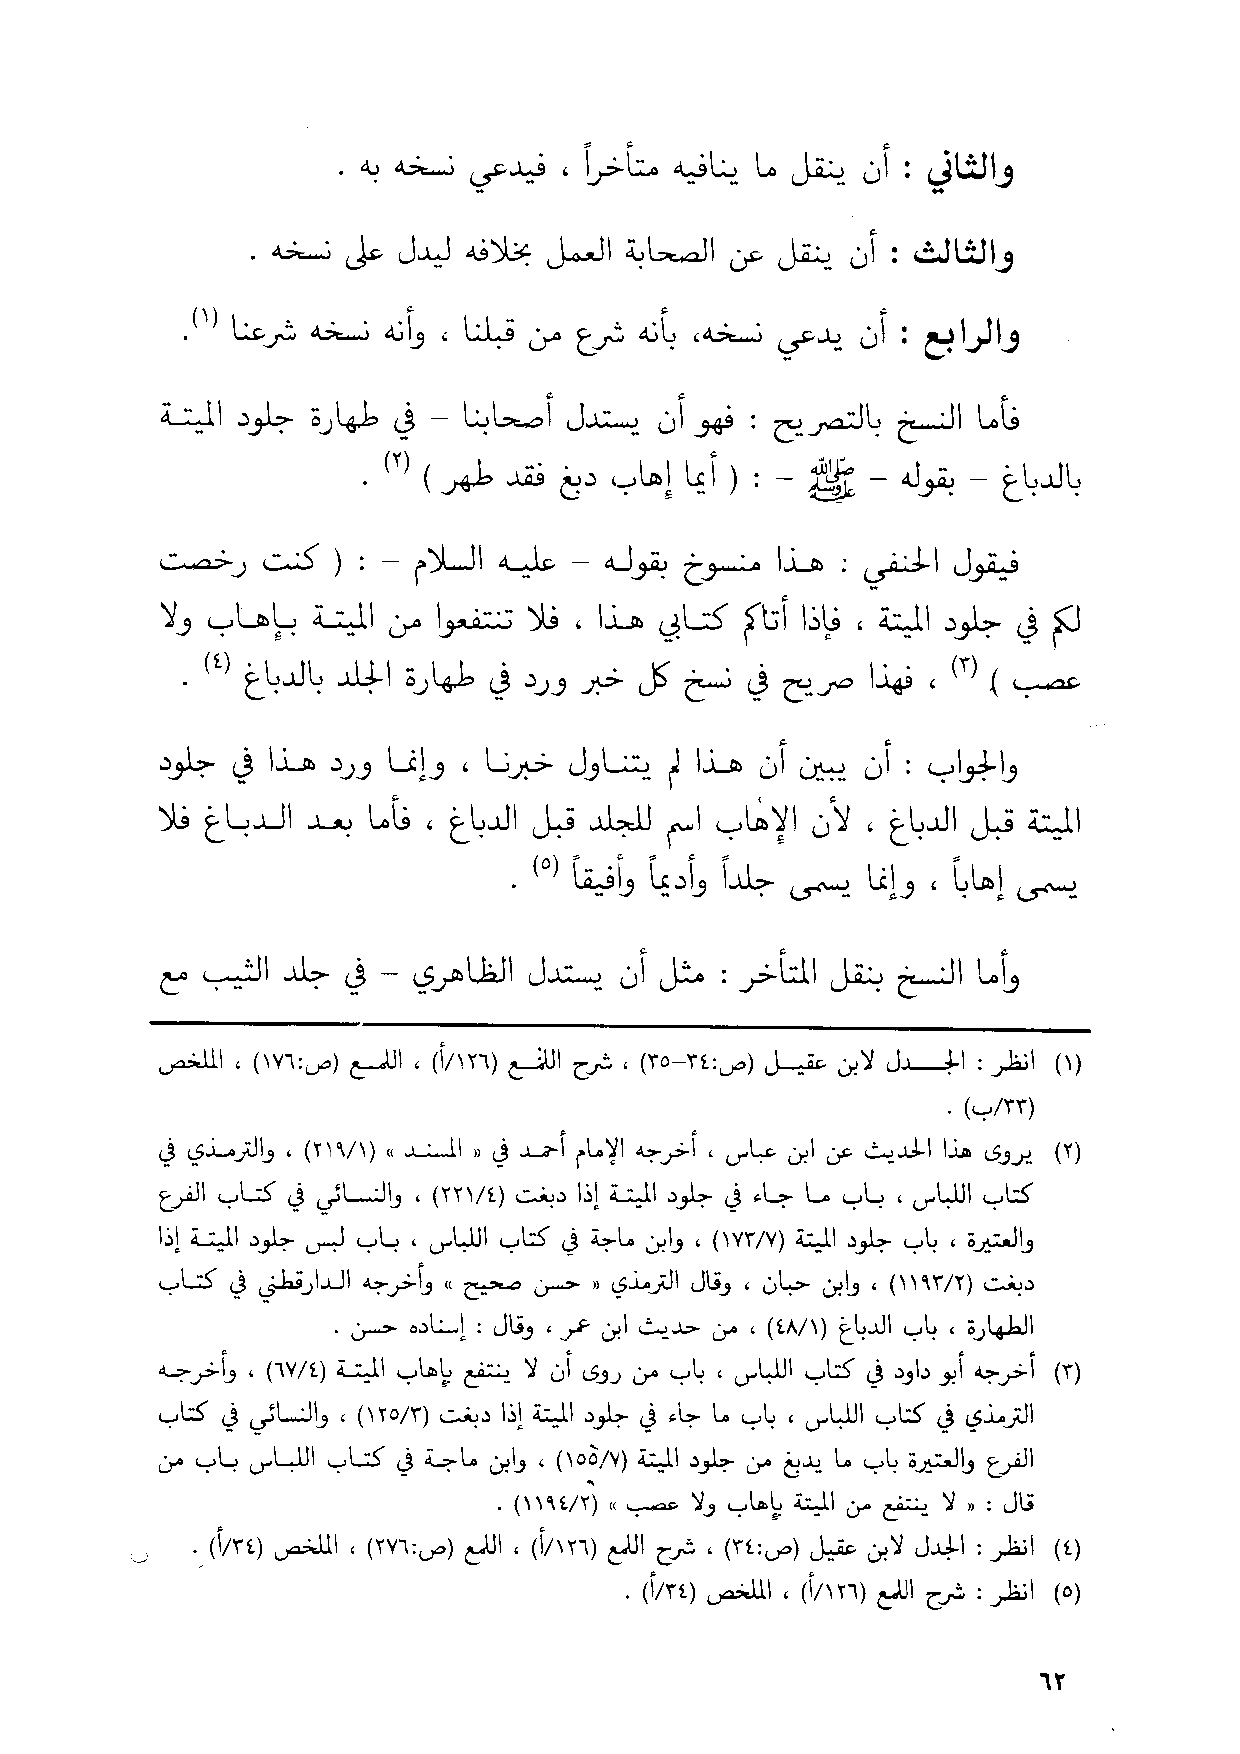 والثاني : أن ينقل ما ينافيه متأخراً ، فيدعي نسخه به .
والثالث : أن ينقل عن الصحابة العمل بخلافه ليدل على نسخه .
والرابع : أن يدعي نسخه، بأنه شرع من قبلنا ، وأنه نسخه شرعنا (١).
فأما النسخ بالتصريح : فهو أن يستدل أصحابنا – في طهارة جلود الميتة
بالدباغ – بقوله – ﷺ – : ( أيما إهاب دبغ فقد طهر ) (٢) .
فيقول الحنفي : هذا منسوخ بقوله – عليه السلام – : ( كنت رخصت
لكم في جلود الميتة ، فإذا أتاكم كتابي هذا ، فلا تنتفعوا من الميتة بإهاب ولا
عصب ) (٣) ، فهذا صريح في نسخ كل خبر ورد في طهارة الجلد بالدباغ (٤) .
والجواب : أن يبين أن هذا لم يتناول خبرنا ، وإنما ورد هذا في جلود
الميتة قبل الدباغ ، لأن الإهاب اسم للجلد قبل الدباغ ، فأما بعد الدباغ فلا
يسمى إهاباً ، وإنما يسمى جلداً وأديماً وأفيقاً (٥) .
وأما النسخ بنقل المتأخر : مثل أن يستدل الظاهري – في جلد الثيب مع
(١) انظر : الجدل لابن عقيل (ص:٣٤–٣٥) ، شرح اللمع (١٢٦/أ) ، اللمع (ص:١٧٦) ، الملخص
(٣٣/ب) .
(٢) يروى هذا الحديث عن ابن عباس ، أخرجه الإمام أحمد في « المسند » (٢١٩/١) ، والترمذي في
كتاب اللباس ، باب ما جاء في جلود الميتة إذا دبغت (٢٢١/٤) ، والنسائي في كتاب الفرع
والعتيرة ، باب جلود الميتة (١٧٣/٧) ، وابن ماجة في كتاب اللباس ، باب لبس جلود الميتة إذا
دبغت (١١٩٣/٢) ، وابن حبان ، وقال الترمذي « حسن صحيح » وأخرجه الدارقطني في كتاب
الطهارة ، باب الدباغ (٤٨/١) ، من حديث ابن عمر ، وقال : إسناده حسن .
(٣) أخرجه أبو داود في كتاب اللباس ، باب من روى أن لا ينتفع بإهاب الميتة (٦٧/٤) ، وأخرجه
الترمذي في كتاب اللباس ، باب ما جاء في جلود الميتة إذا دبغت (١٢٥/٣) ، والنسائي في كتاب
الفرع والعتيرة باب ما يدبغ من جلود الميتة (١٥٥/٧) ، وابن ماجة في كتاب اللباس باب من
قال : « لا ينتفع من الميتة بإهاب ولا عصب » (١١٩٤/٢) .
(٤) انظر : الجدل لابن عقيل (ص:٣٤) ، شرح اللمع (١٢٦/أ) ، اللمع (ص:٢٧٦) ، الملخص (٣٤/أ) .
(٥) انظر : شرح اللمع (١٢٦/أ) ، الملخص (٣٤/أ) .
٦٢